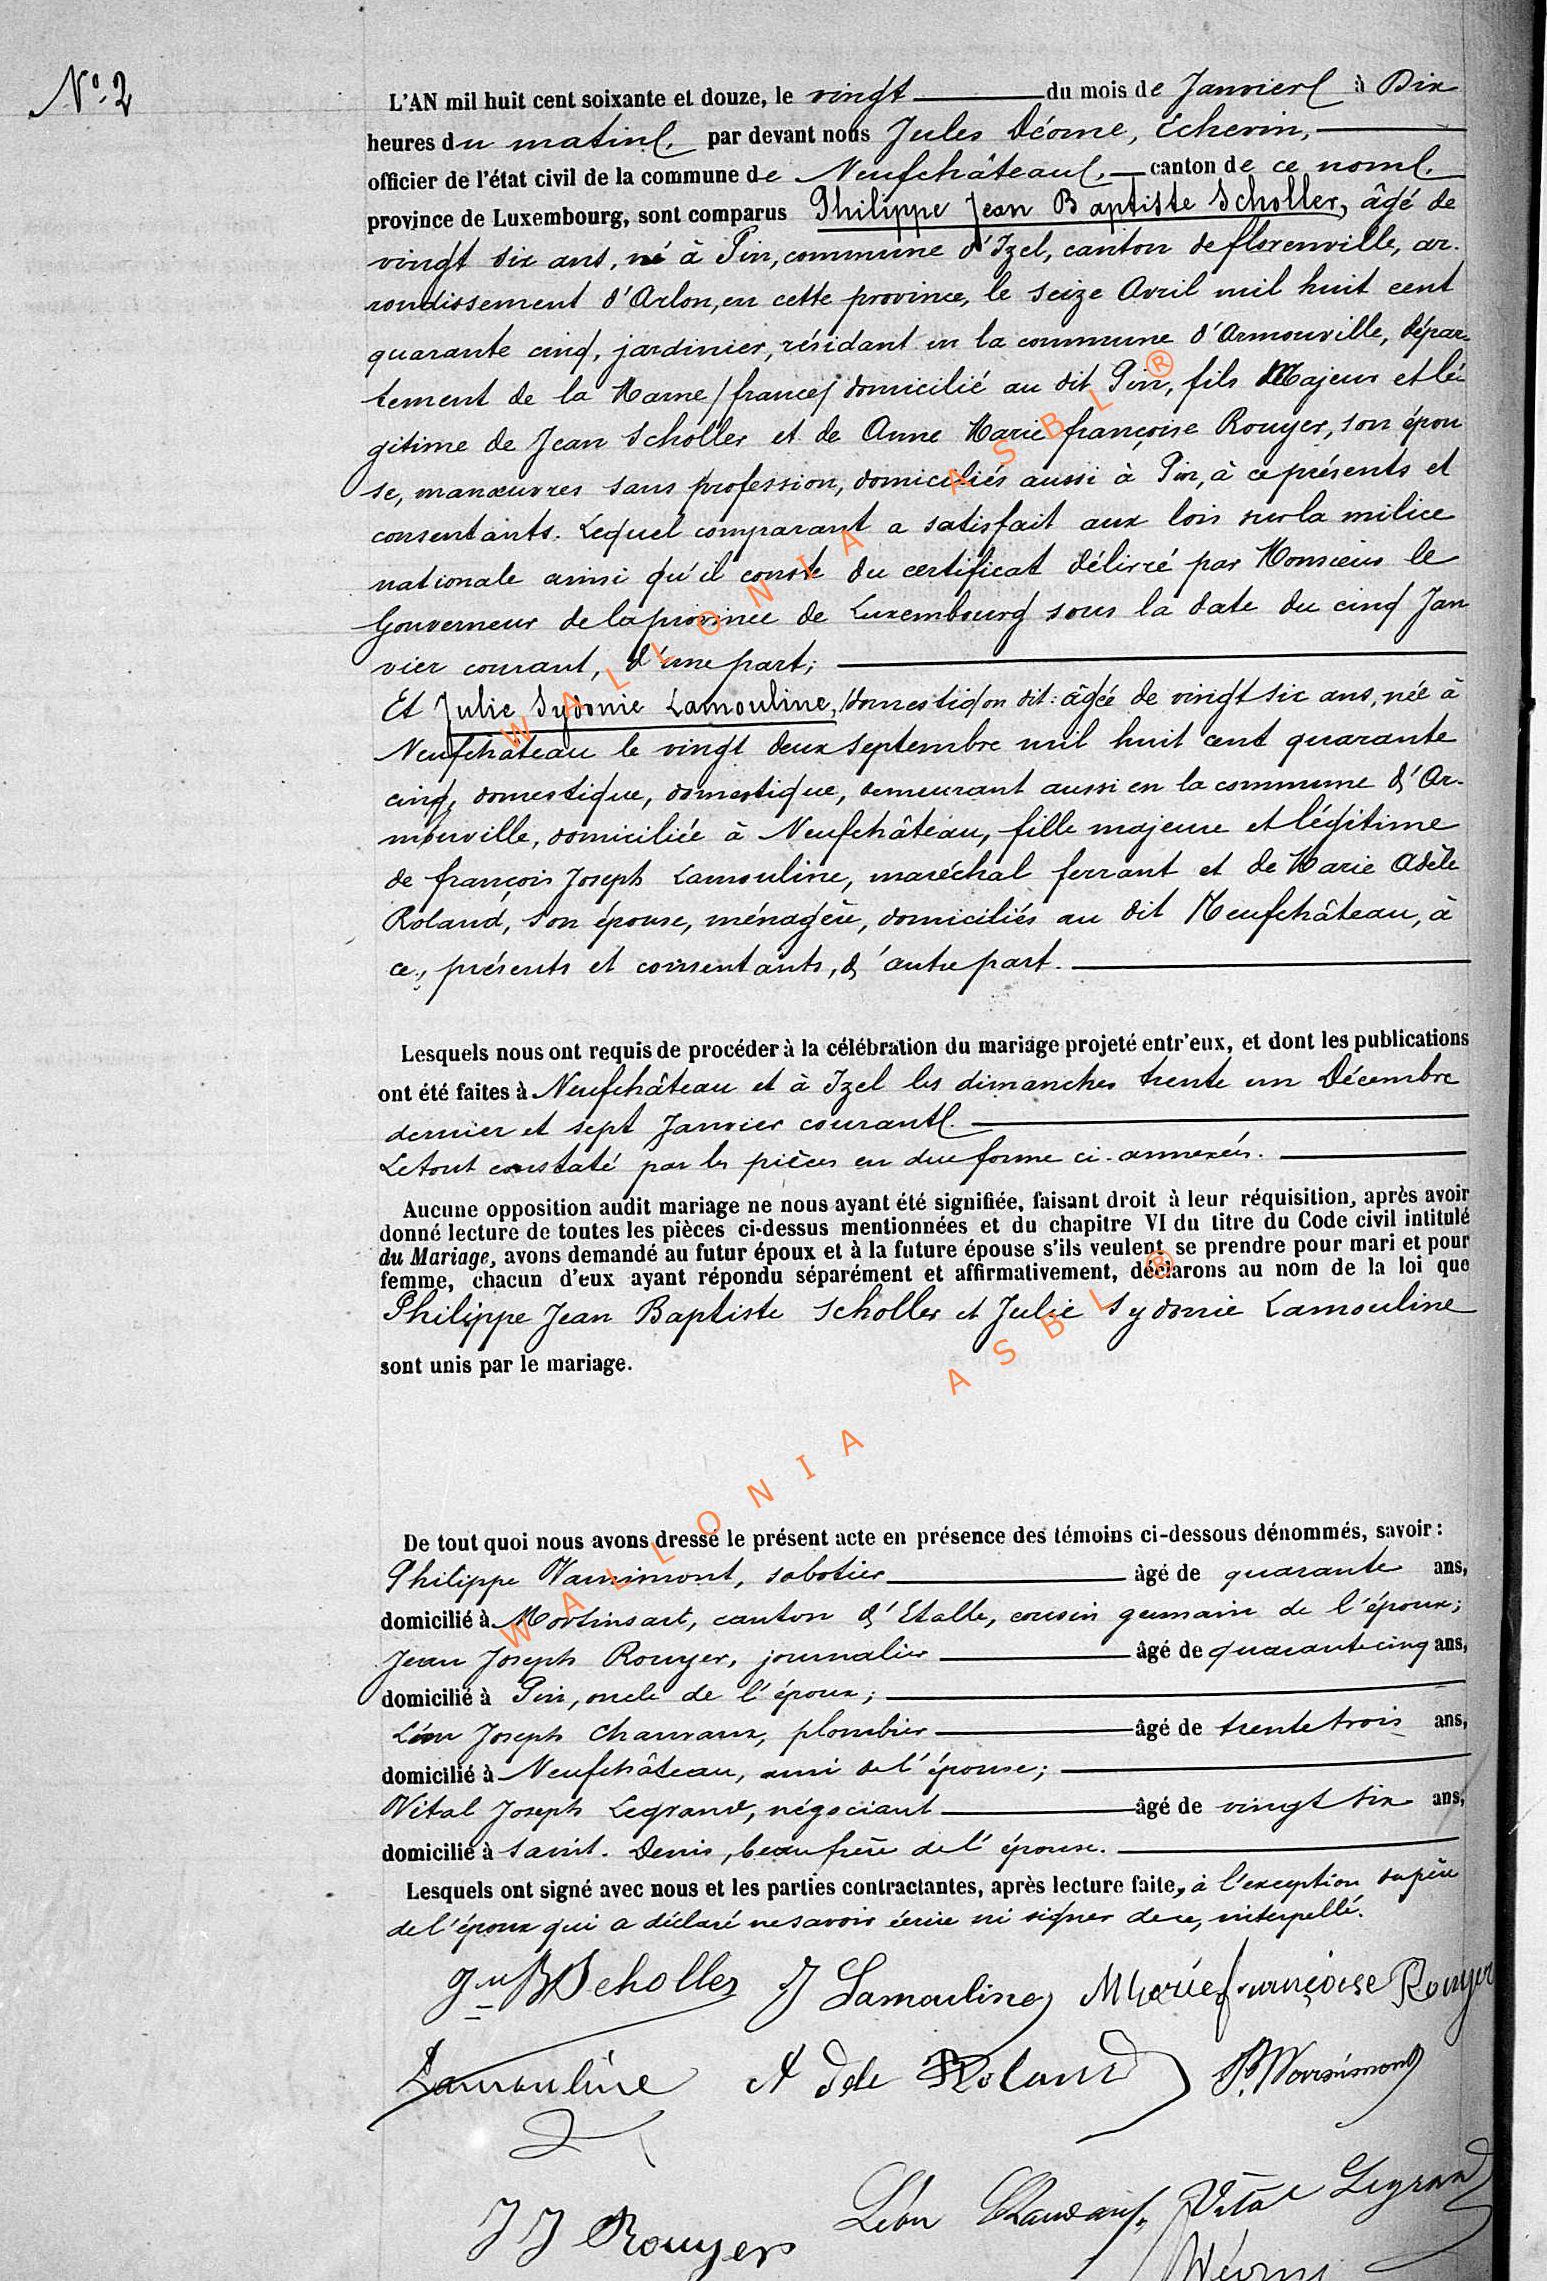 N° 2
L'AN mil huit cent soixante et douze, le vingt du mois de Janvier à Dix
heures du matin, par devant nous Jules Déome, Échevin,
officier de l'état civil de la commune de Neufchâteau, canton de ce nom,
province de Luxembourg, sont comparus Philippe Jean Baptiste Scholler, âgé de
vingt six ans, né à Pin, commune d'Izel, canton de florenville, ar-
rondissement d'Arlon, en cette province, le seize Avril mil huit cent
quarante cinq, jardinier, résidant en la commune d'Armouville, dépar-
tement de la Marne /france/ domicilié au dit Pin, fils Majeur et lé-
gitime de Jean Scholler et de Anne Marie françoise Rouyer, son épou
se, manœuvres sans profession, domiciliés aussi à Pin, à ce présents et
consentants. Lequel comparant a satisfait aux lois sur la milice
nationale ainsi qu'il conste du certificat délivré par Monsieur le
Gouverneur de la province de Luxembourg sous la date du cinq Jan
vier courant, d'une part;
Et Julie Sydonie Lamouline, domestiq on dit: âgée de vingt six ans, née à
Neufchâteau le vingt deux septembre mil huit cent quarante
cinq, domestique, domestique, demeurant aussi en la commune d'Ar-
mouville, domiciliée à Neufchâteau, fille majeure et légitime
de françois Joseph Lamouline, maréchal ferrant et de Marie Adèle
Roland, son épouse, ménagère, domiciliés au dit Neufchâteau, à
ce, présents et consentants, d'autre part.
Lesquels nous ont requis de procéder à la célébration du mariage projeté entr'eux, et dont les publications
ont été faites à Neufchâteau et à Izel les dimanches trente un Décembre
dernier et sept Janvier courant.
Le tout constaté par les pièces en due forme ci-annexées.
Aucune opposition audit mariage ne nous ayant été signifiée, faisant droit à leur réquisition, après avoir
donné lecture de toutes les pièces ci-dessus mentionnées et du chapitre VI du titre du Code civil intitulé
du Mariage, avons demandé au futur époux et à la future épouse s'ils veulent se prendre pour mari et pour
femme, chacun d'eux ayant répondu séparément et affirmativement, déclarons au nom de la loi que
Philippe Jean Baptiste Scholler et Julie Sydonie Lamouline
sont unis par le mariage.
De tout quoi nous avons dressé le présent acte en présence des témoins ci-dessous dénommés, savoir :
Philippe Warnimont, sabotier âgé de quarante ans,
domicilié à Mortinsart, canton d'Etalle, cousin germain de l'époux;
Jean Joseph Rouyer, journalier âgé de quarante cinq ans,
domicilié à Pin, oncle de l'époux;
Léon Joseph Chauvaux, plombier âgé de trente trois ans,
domicilié à Neufchâteau, ami de l'épouse;
Vital Joseph Legrand, négociant âgé de vingt six ans,
domicilié à Saint-Denis, beau frère de l'épouse.
Lesquels ont signé avec nous et les parties contractantes, après lecture faite, à l'exception du père
de l'époux qui a déclaré ne savoir écrire ni signer de ce, interpellé.
Jn B Scholler J Lamouline Marie françoise Rouyer
Lamouline Adele Roland P. Warnimont
J J Rouyer Léon Chauvaux Vital Legrand
Déome
WALLONIA ASBL ®
WALLONIA ASBL ®